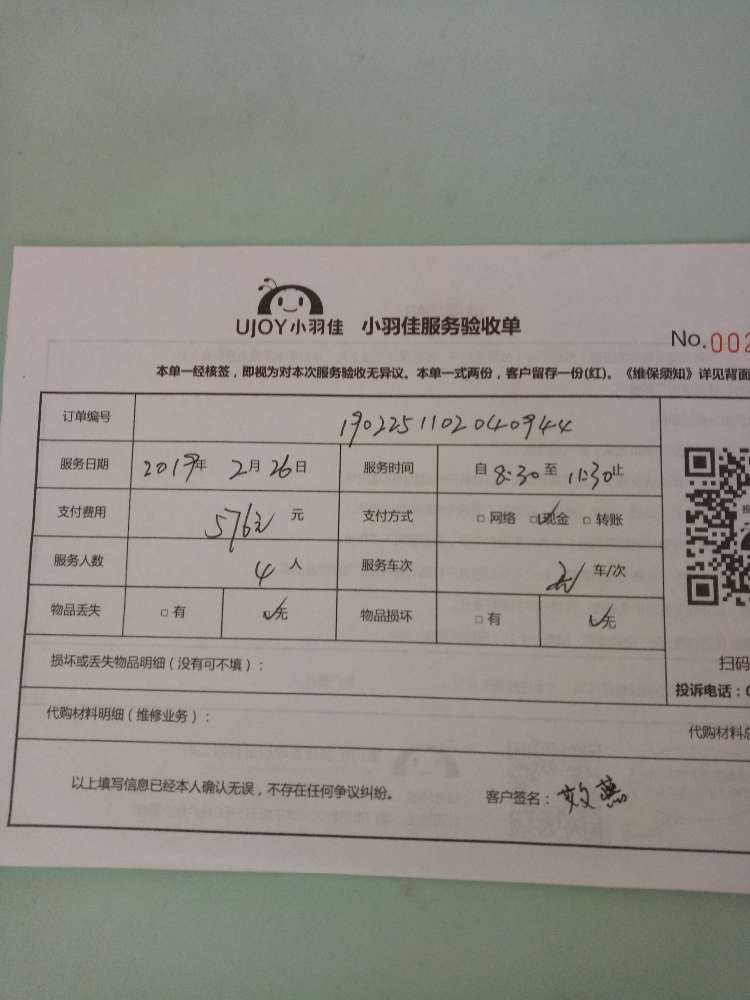 UJOY小羽佳 小羽佳服务验收单
No.002
本单一经核签，即视为对本次服务验收无异议。本单一式两份，客户留存一份(红)。《维保须知》详见背面
订单编号 1902251102040944
服务日期 2019年 2月26日 服务时间 自 8:30 至 11:30 止
支付费用 576元 元 支付方式 □ 网络 ☑现金 □ 转账
服务人数 4 人 服务车次 车/次
物品丢失 □ 有 ☑无 物品损坏 □ 有 ☑无
损坏或丢失物品明细（没有可不填）：
扫码
投诉电话：0
代购材料明细（维修业务）：
代购材料总
以上填写信息已经本人确认无误，不存在任何争议纠纷。 客户签名：